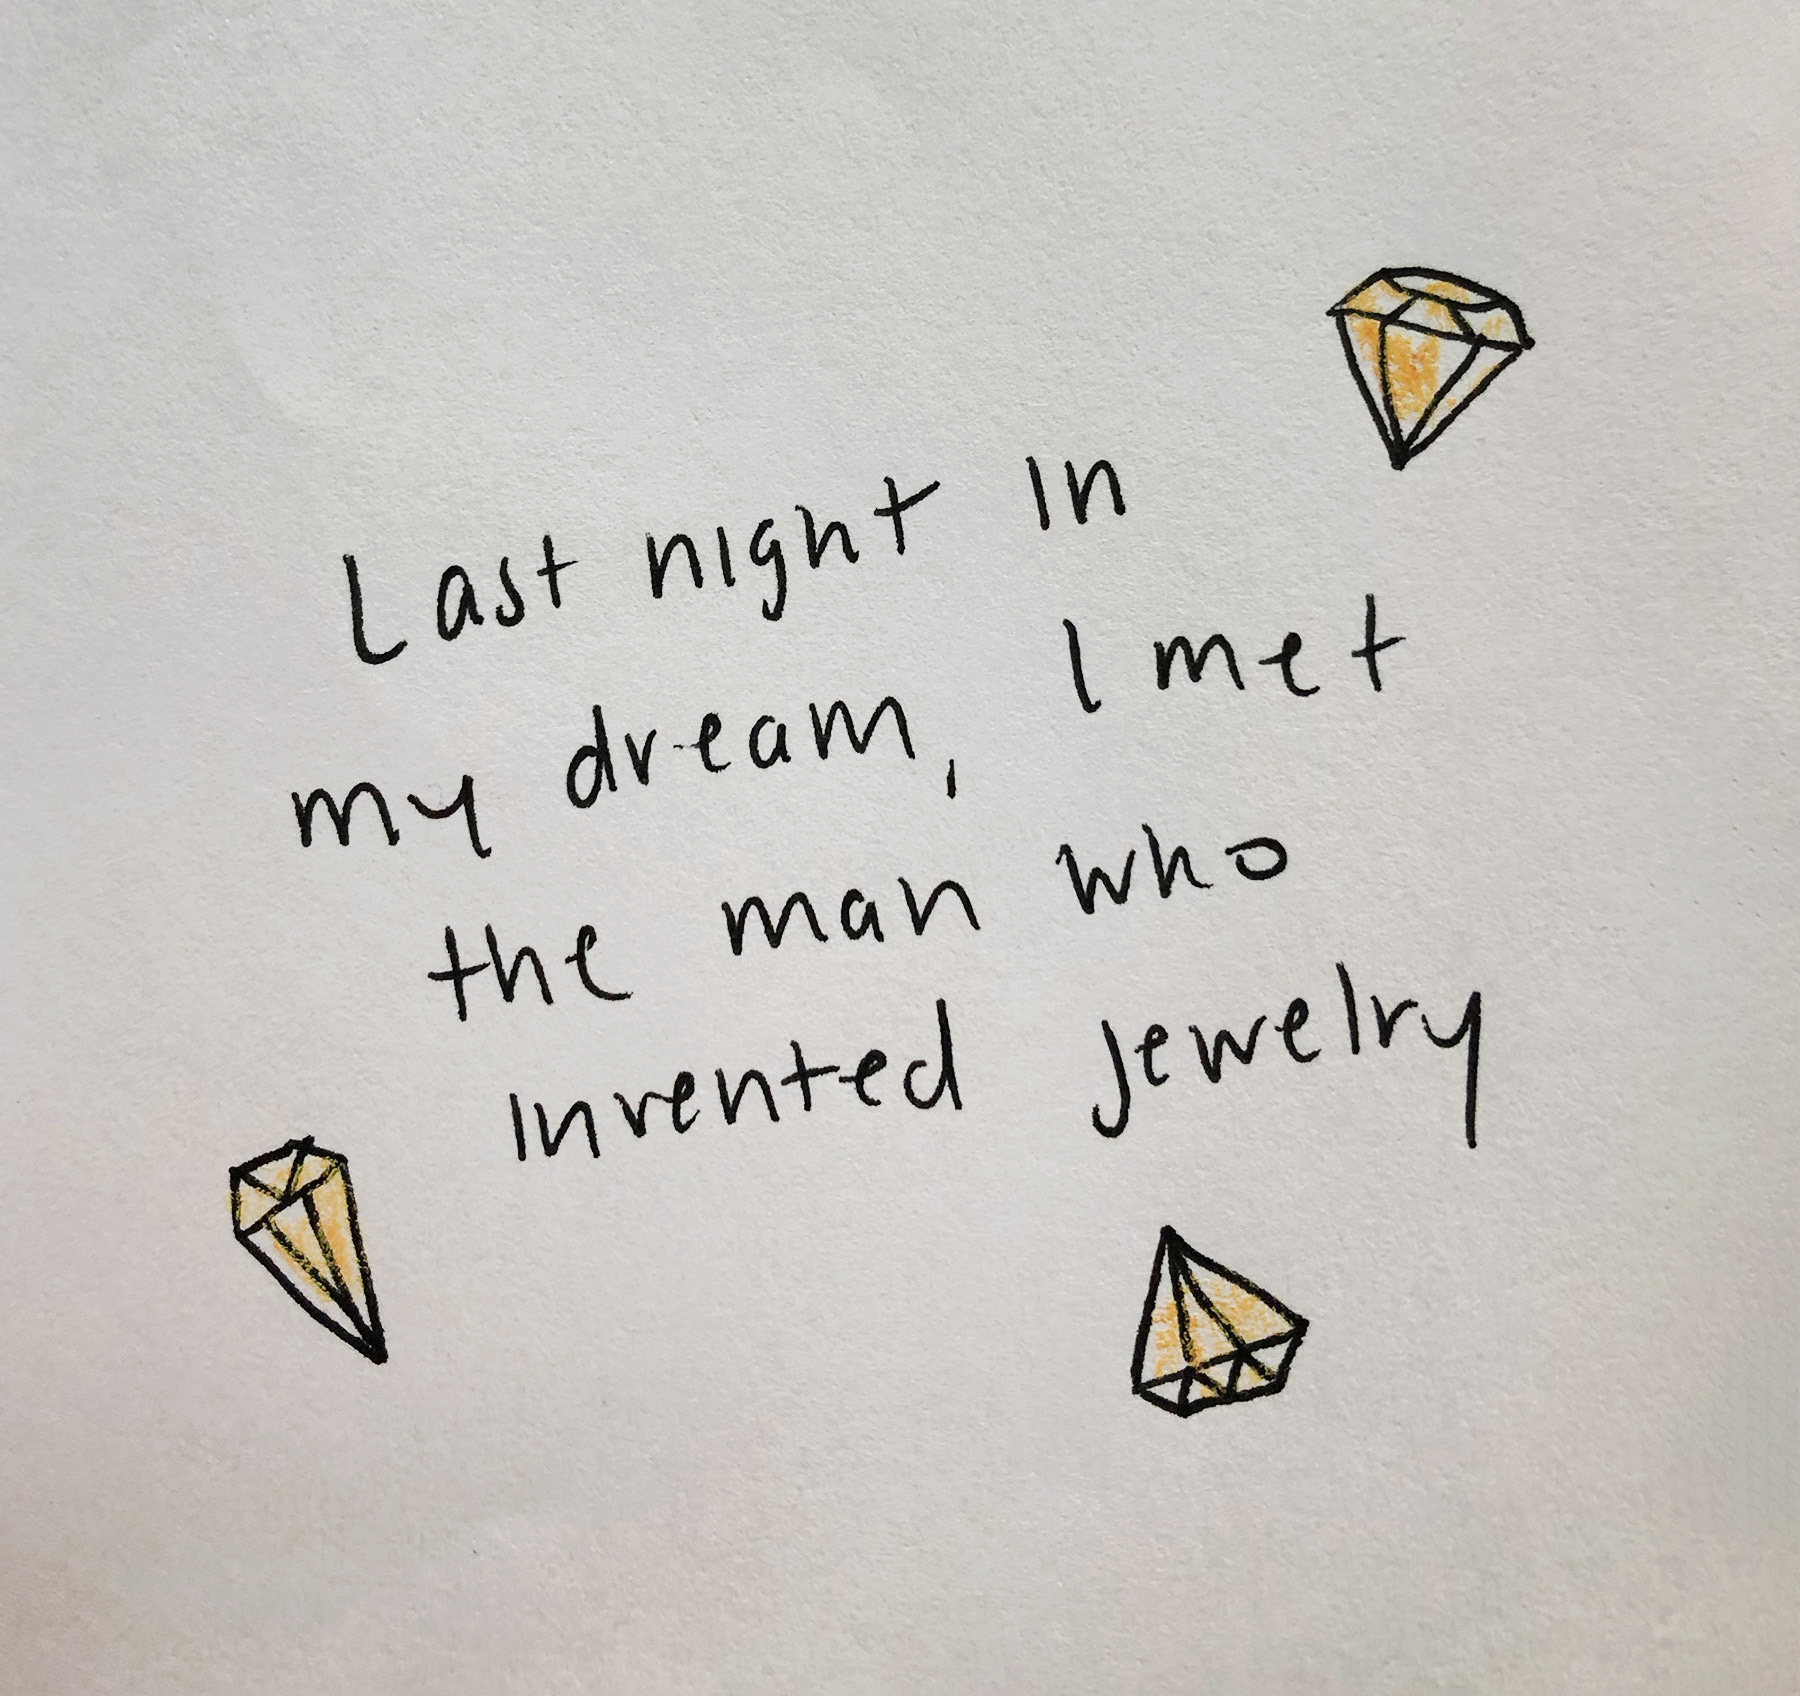 Last night in
my dream, I met
the man who
invented jewelry